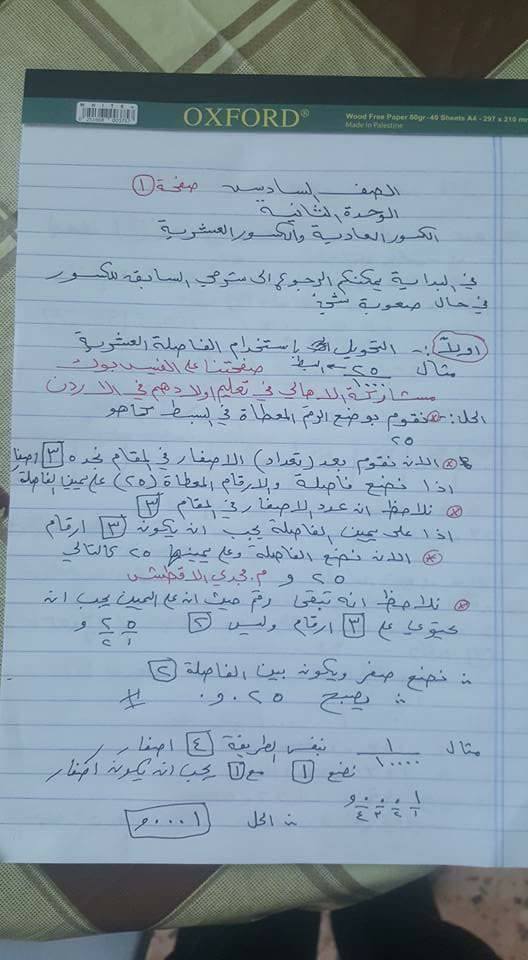 WHITE
OXFORD®
Wood Free Paper 60gr - 40 Sheets A4 - 297 x 210 mm
Made in Palestine
الصف السادس صفحة ١
الوحدة الثانية
الكسور العادية والكسور العشرية
في البداية يمكنكم الرجوع الى شرحي السابق للكسور
في حال صعوبة شيئ
اولاً :- التحويل باستخدام الفاصلة العشرية
مثال ٢٥ البسط صفحتنا على الفيس بوك
١٠٠٠
مشاركة الاهالي في تعليم اولادهم في الاردن
الحل:- نقوم بوضع الرقم المعطاة في البسط كما هو
٢٥
الان نقوم بعد (تعداد) الاصفار في المقام نجده ٣ اصفار
اذا نضع فاصلة والارقام المعطاة (٢٥) على يمين الفاصلة
نلاحظ ان عدد الاصفار في المقام ٣
اذا على يمين الفاصلة يجب ان يكون ٣ ارقام
الان نضع الفاصلة وعلى يمينها ٢٥ كالتالي
٢٥ و م. مجدي الاقطش
نلاحظ انه تبقى رقم حيث ان على اليمين يجب ان
يحتوي على ٣ ارقام وليس ٢ ٢٥ و
١ ٢
∴ نضع صفر ويكون بين الفاصلة ٢
∴ يصبح ٠٢٥و٠ #
مثال ١ بنفس الطريقة ٤ اصفار
١٠٠٠٠
نضع ١ مع ١ يجب ان يكون اصفار
٠٠٠١و
١ ٢ ٣ ٤
∴ الحل ٠٠٠١و